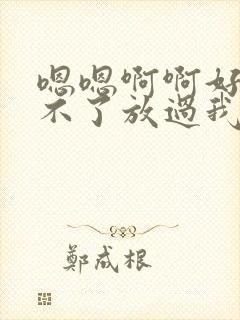 嗯嗯啊啊好
不了放過我
鄭成根